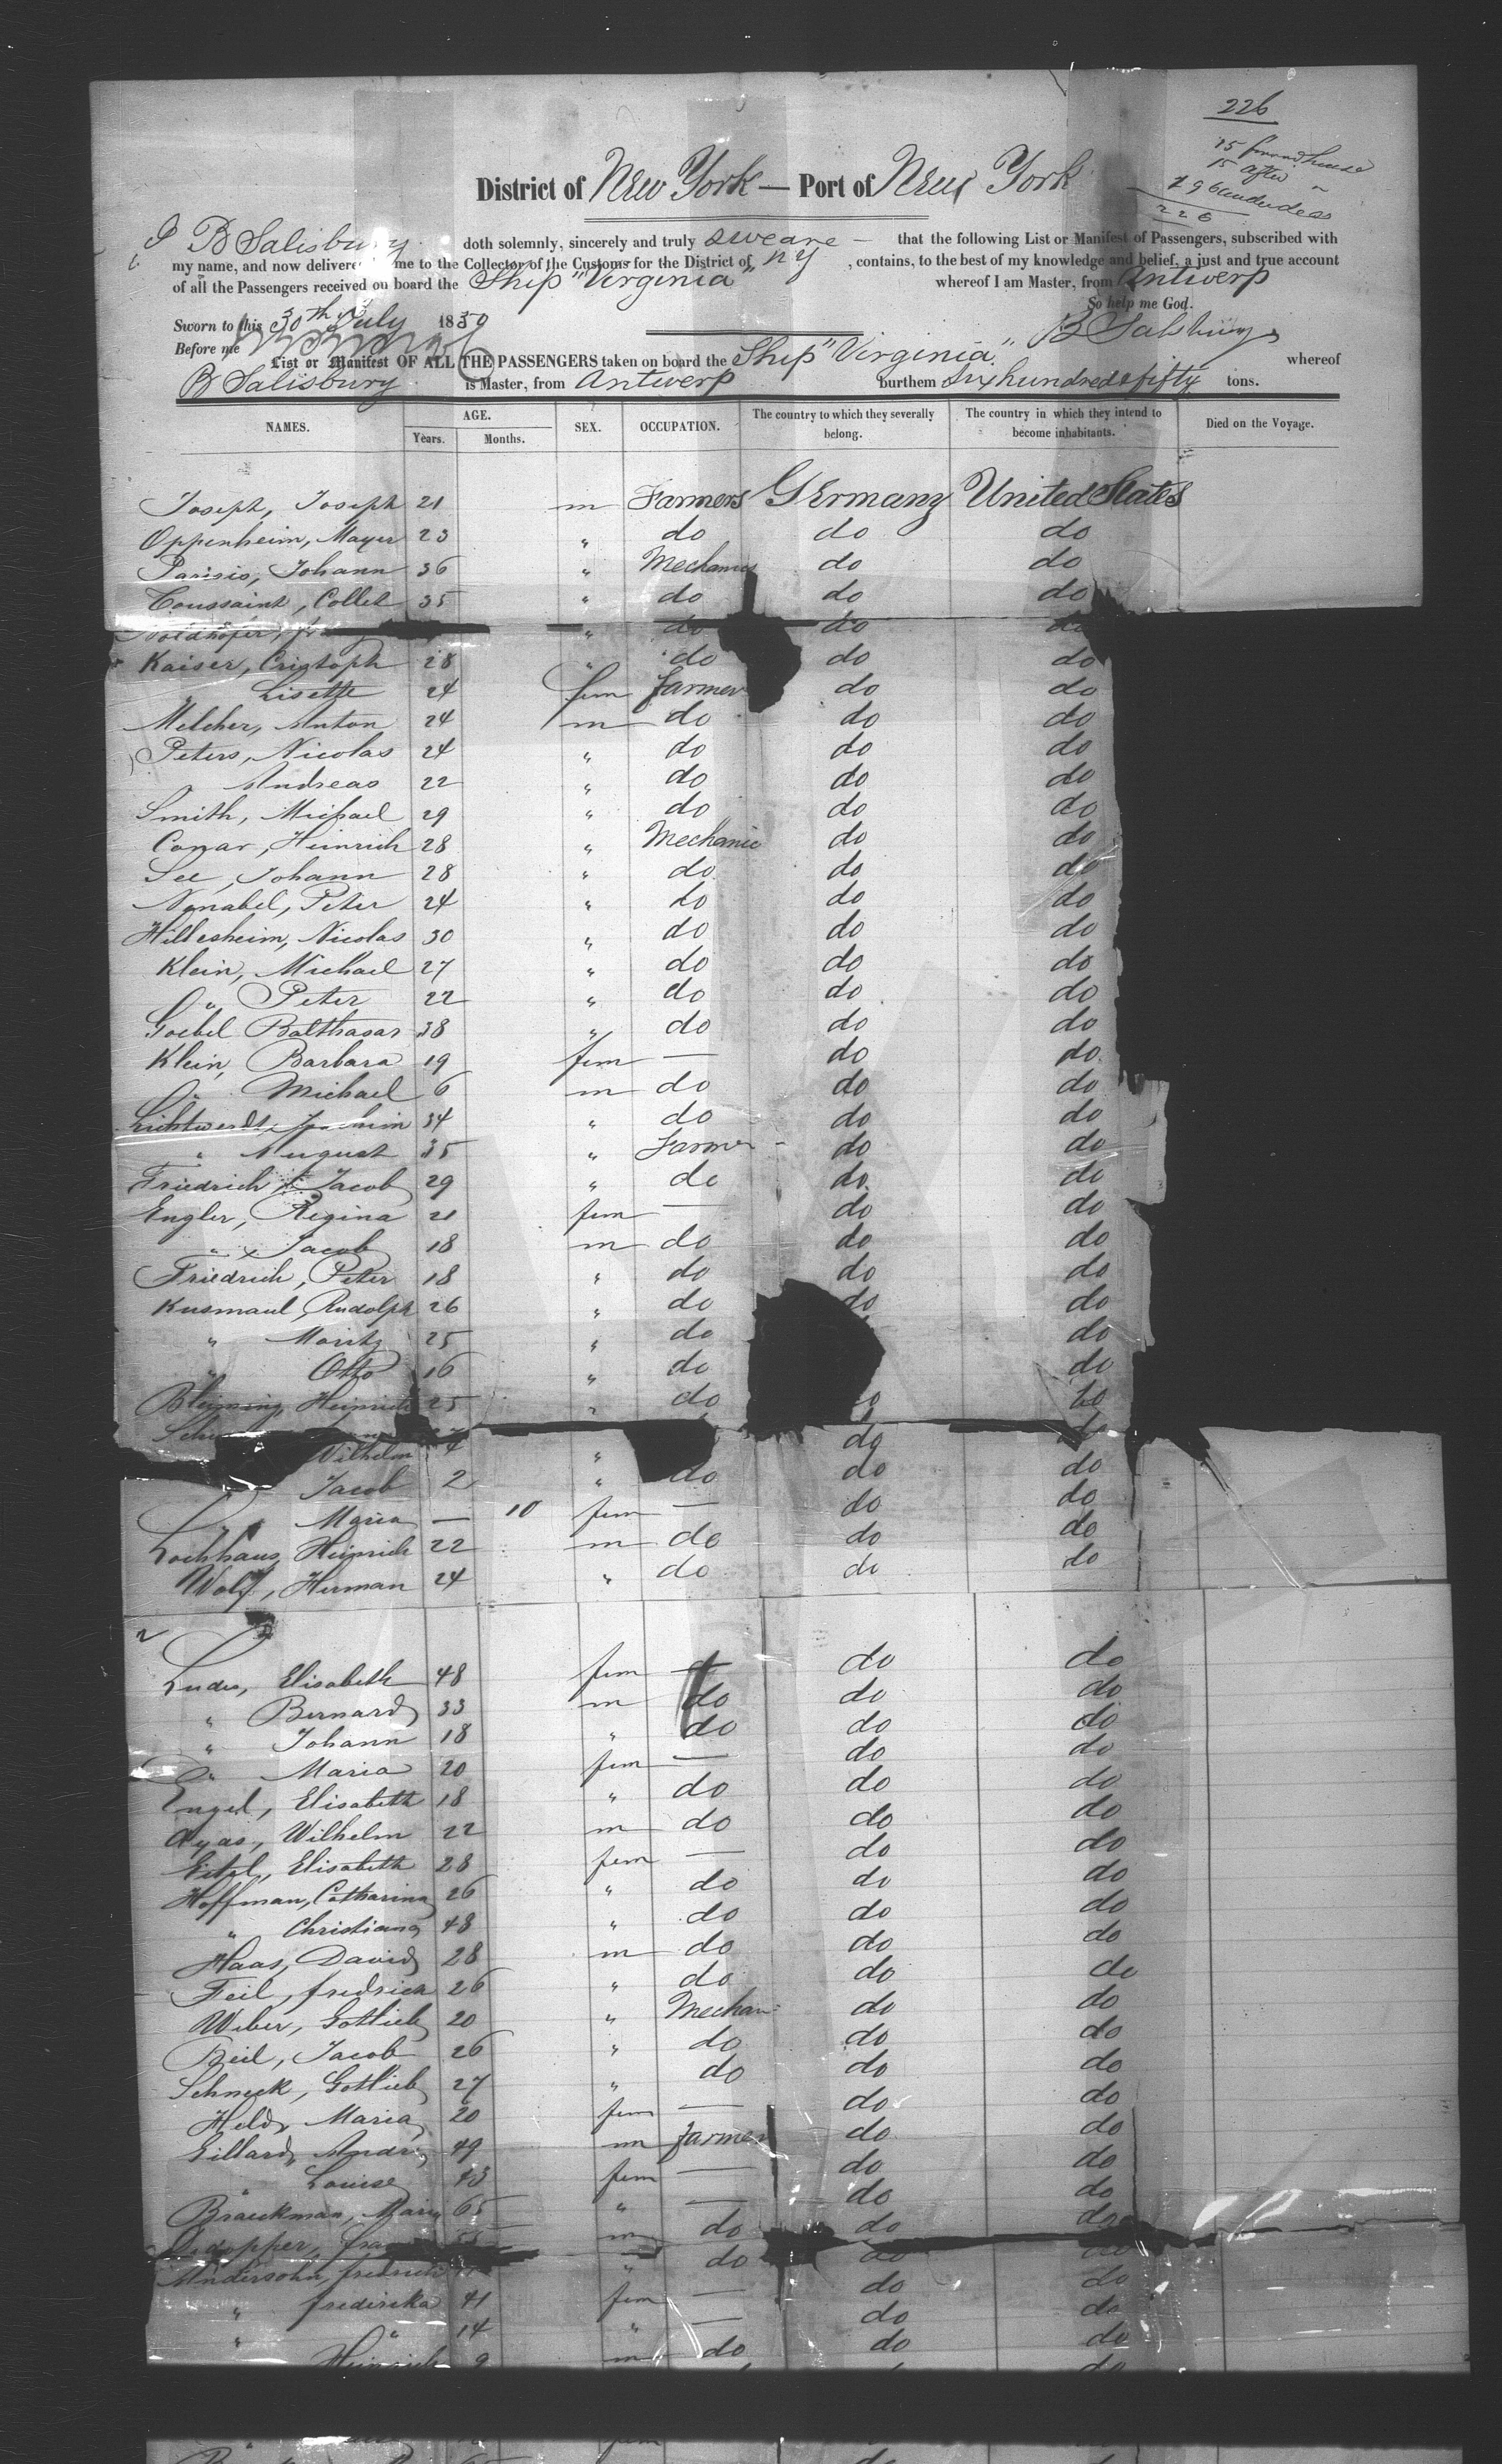 226
15 forward house
15 after "
196 under deck
226
District of New York — Port of New York
I B Salisbury doth solemnly, sincerely and truly sweare — that the following List or Manifest of Passengers, subscribed with
my name, and now delivered me to the Collector of the Customs for the District of NY, contains, to the best of my knowledge and belief, a just and true account
of all the Passengers received on board the Ship "Virginia" whereof I am Master, from Antwerp
So help me God.
Sworn to this 30th July 1859 B Salsbury
Before me
List or Manifest OF ALL THE PASSENGERS taken on board the Ship "Virginia" whereof
B Salisbury is Master, from Antwerp burthem Six hundred & fifty tons.
NAMES. AGE. Years. Months. SEX. OCCUPATION. The country to which they severally belong. The country in which they intend to become inhabitants. Died on the Voyage.
Joseph, Joseph 21 m Farmers Germany United States
Oppenheim, Mayer 23 " do do do
Parisis, Johann 36 " Mechanics do do
Toussaint, Collet 35 " do do do
" do do do
Kaiser, Cristoph 28 " do do do
" Lisette 24 fem farmer do do
Melcher, Anton 24 m do do do
Peters, Nicolas 24 " do do do
" Andreas 22 " do do do
Smith, Michael 29 " do do do
Conar, Heinrich 28 " Mechanic do do
See, Johann 28 " do do do
Nonabel, Peter 24 " do do do
Hillesheim, Nicolas 30 " do do do
Klein, Michael 27 " do do do
" Peter 22 " do do do
Goebel Balthasar 38 " do do do
Klein, Barbara 19 fem — do do
" Michael 6 m do do do
Lichtwerdt, Joachim 34 " do do do
" August 35 " Farmer do do
Friedrich, Jacob 29 " do do do
Engler, Regina 21 fem — do do
" x Jacob 18 m do do do
Friedrich, Peter 18 " do do do
Kusmaul, Rudolph 26 " do do do
" Moritz 25 " do do
" Otto 16 " do do
Bleiming, Heinrich 25 " do do do
do do
Wilhelm 4 "
Jacob 2 " do do do
" Maria — 10 fem — do do
Lochhaus, Heinrich 22 m do do do
Wolf, Herman 24 " do do do
2
Ludes, Elisabeth 48 fem — do do
" Bernard 33 m do do do
" Johann 18 " do do do
" Maria 20 fem — do do
Engel, Elisabeth 18 " do do do
Ayas, Wilhelm 22 m do do do
Eitel, Elisabeth 28 fem — do do
Hoffman, Catharina 26 " do do do
" Christiana 48 " do do do
Haas, David 28 m do do do
Feil, fredrich 26 " do do do
Weber, Gottlieb 20 " Mechan: do do
Beil, Jacob 26 " do do do
Schneck, Gottlieb 27 " do do do
Held, Maria 20 fem — do do
Gillard, Andre 49 m farmer do do
" Louise 43 fem — do do
Braeckman, Maria 65 " — do do
m do do do
Andersohn, fredrich " do do do
" frederika 41 fem — do do
" " 14 " — do do
Heinrich 9 m do do do